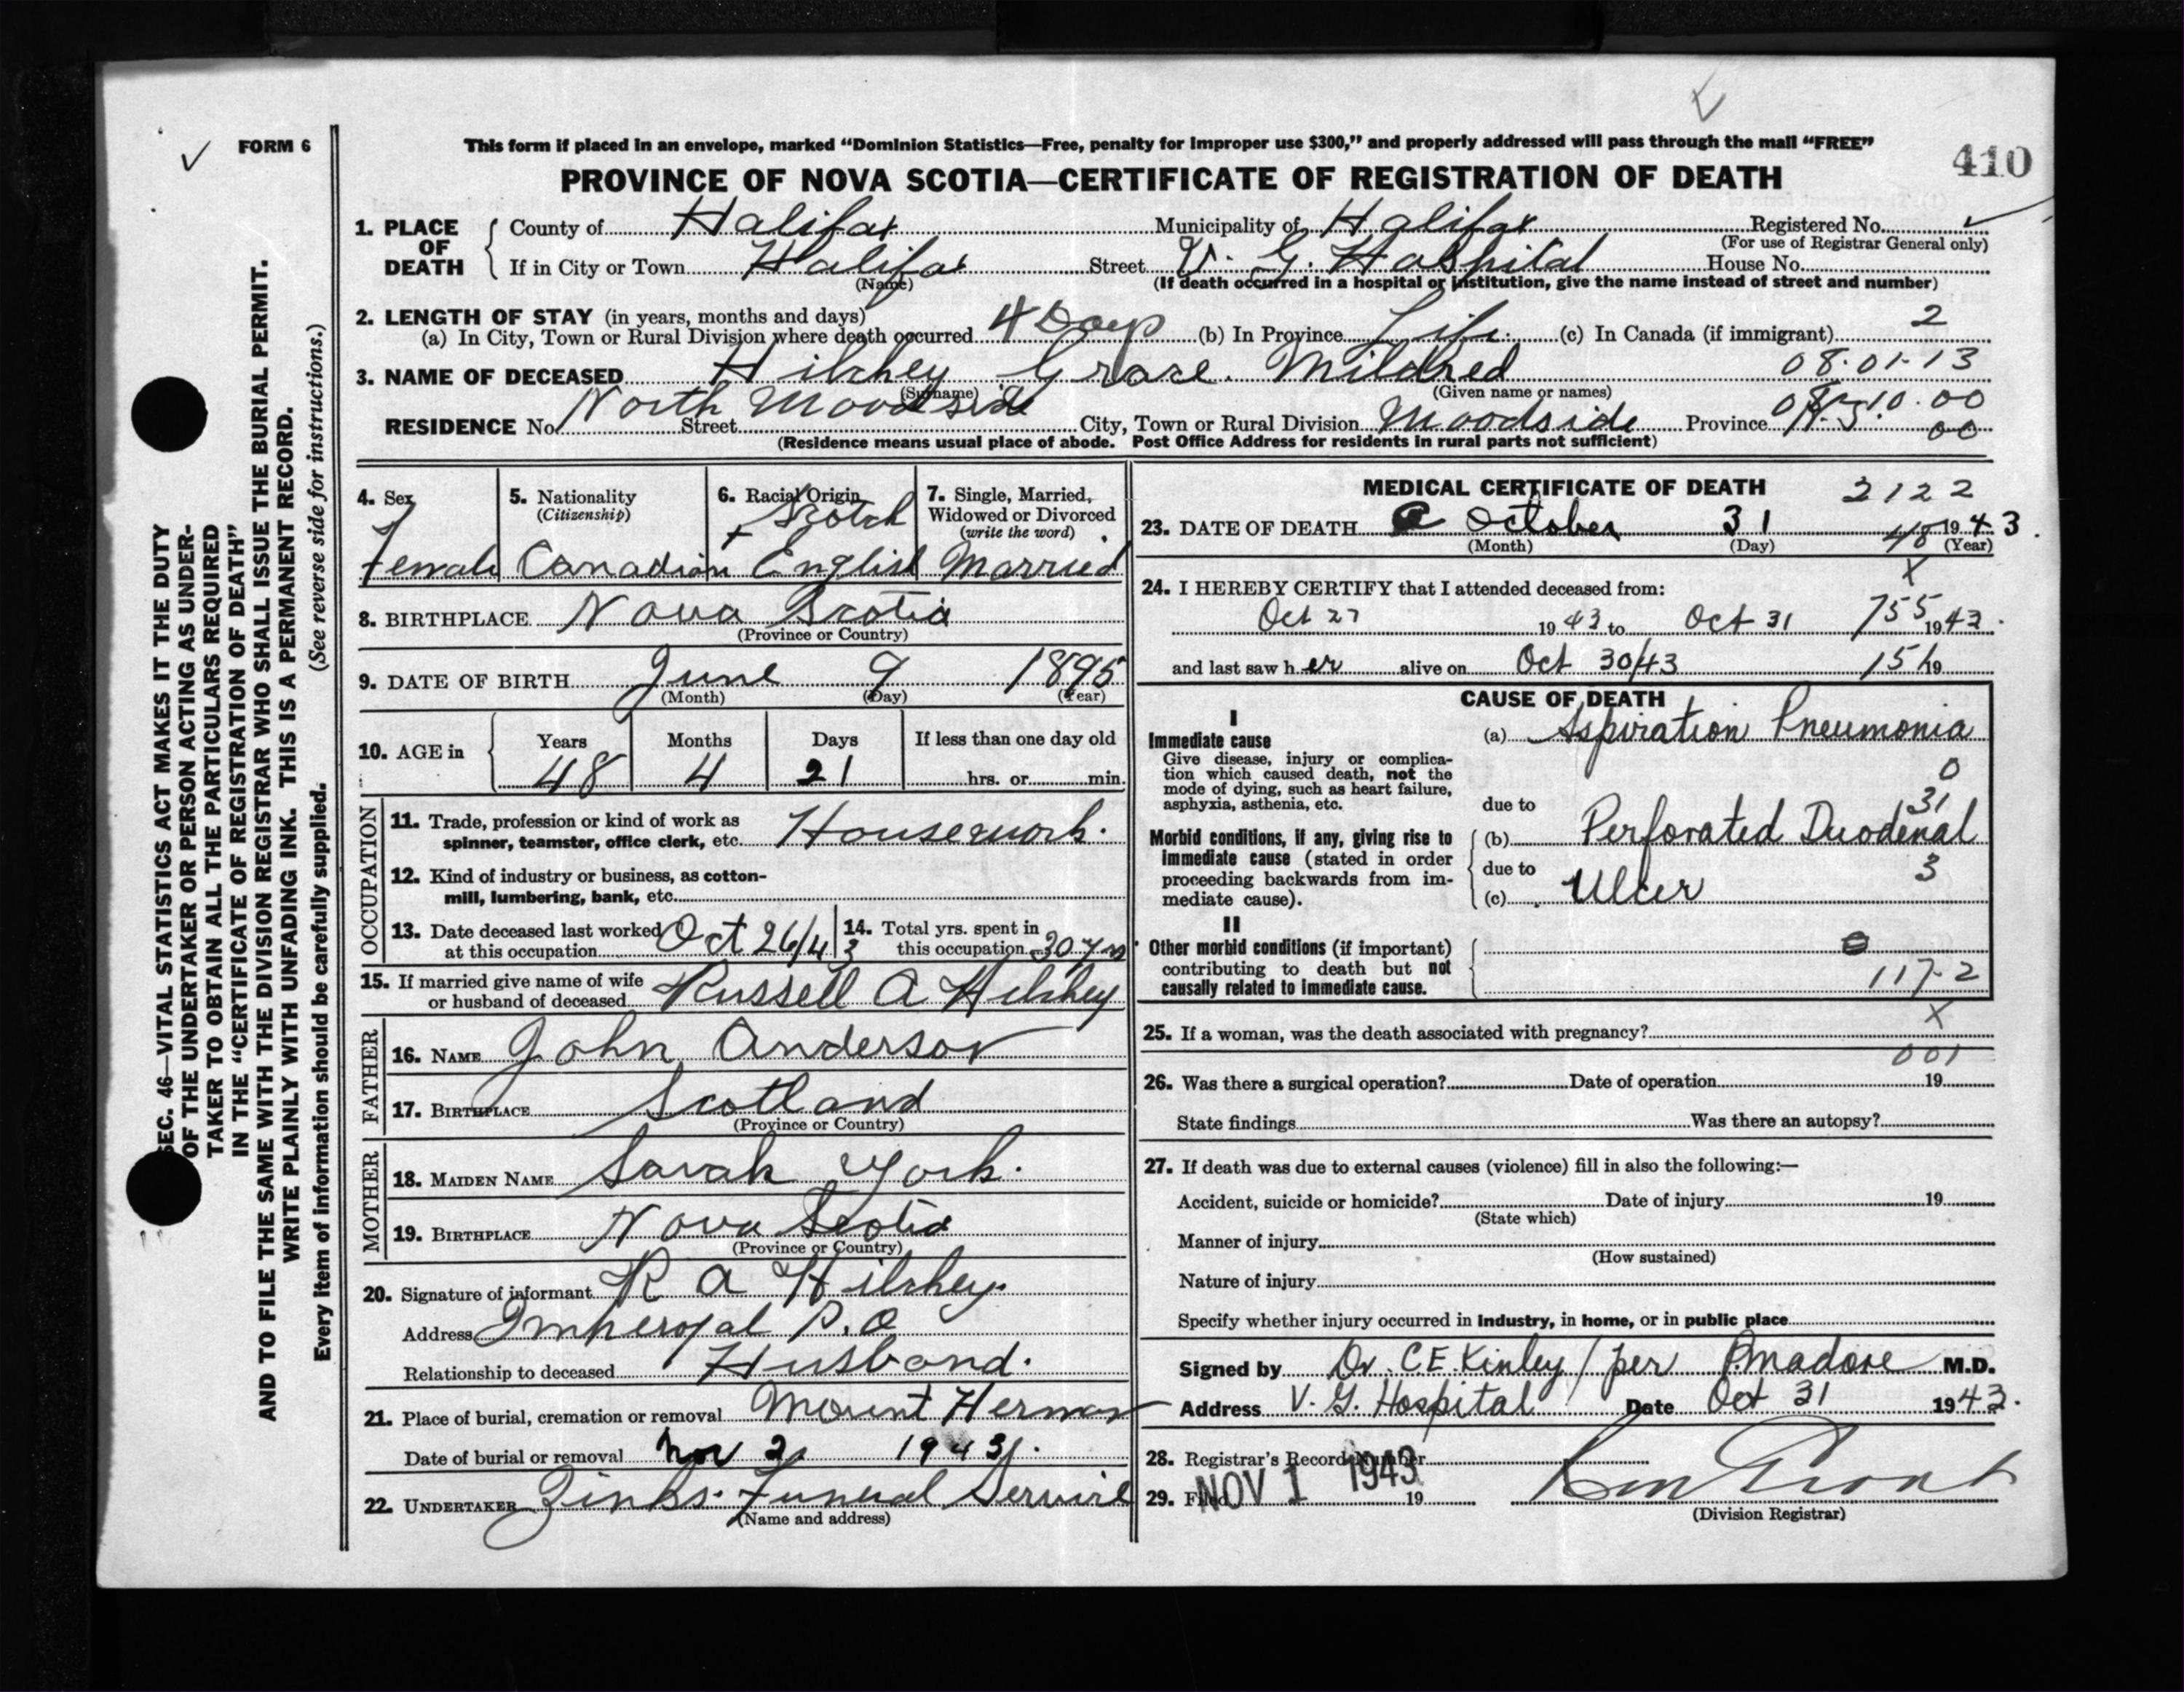 FORM 6
This form if placed in an envelope, marked "Dominion Statistics—Free, penalty for improper use $300," and properly addressed will pass through the mail "FREE"
410
PROVINCE OF NOVA SCOTIA—CERTIFICATE OF REGISTRATION OF DEATH
1. PLACE OF DEATH
County of Halifax Municipality of Halifax Registered No.
(For use of Registrar General only)
If in City or Town Halifax Street V. G. Hospital House No.
(Name) (If death occurred in a hospital or institution, give the name instead of street and number)
2. LENGTH OF STAY (in years, months and days)
(a) In City, Town or Rural Division where death occurred 4 Days (b) In Province Life (c) In Canada (if immigrant) 2
3. NAME OF DECEASED Hilchey Grace Mildred 08.01.13
(Surname) (Given name or names)
RESIDENCE No. North Woodside Street City, Town or Rural Division Woodside Province N.S. 10.00
00
(Residence means usual place of abode. Post Office Address for residents in rural parts not sufficient)
4. Sex
Female
5. Nationality
(Citizenship)
Canadian
6. Racial Origin
Scotch
+ English
7. Single, Married, Widowed or Divorced
(write the word)
Married
8. BIRTHPLACE Nova Scotia
(Province or Country)
9. DATE OF BIRTH June 9 1895
(Month) (Day) (Year)
10. AGE in
Years Months Days If less than one day old
48 4 21 hrs. or min.
OCCUPATION
11. Trade, profession or kind of work as
spinner, teamster, office clerk, etc. Housework.
12. Kind of industry or business, as cotton-
mill, lumbering, bank, etc.
13. Date deceased last worked
at this occupation Oct 26/43
14. Total yrs. spent in
this occupation 30 yrs
15. If married give name of wife
or husband of deceased Russell A Hilchey
FATHER
16. NAME John Anderson
17. BIRTHPLACE Scotland
(Province or Country)
MOTHER
18. MAIDEN NAME Sarah York.
19. BIRTHPLACE Nova Scotia
(Province or Country)
20. Signature of informant R A Hilchey.
Address Imperoyal P.O
Relationship to deceased Husband.
21. Place of burial, cremation or removal Mount Hermon
Date of burial or removal Nov 2 1943
22. UNDERTAKER Zinks Funeral Service
(Name and address)
MEDICAL CERTIFICATE OF DEATH 2122
23. DATE OF DEATH October 31 1943
(Month) (Day) (Year)
48
x
24. I HEREBY CERTIFY that I attended deceased from:
Oct 27 1943 to Oct 31 1943.
755
and last saw her alive on Oct 30/43 19
CAUSE OF DEATH
I
Immediate cause
Give disease, injury or complica-
tion which caused death, not the
mode of dying, such as heart failure,
asphyxia, asthenia, etc.
(a) Aspiration Pneumonia
0
due to
31
Morbid conditions, if any, giving rise to
immediate cause (stated in order
proceeding backwards from im-
mediate cause).
(b) Perforated Duodenal
due to
3
(c) Ulcer
II
Other morbid conditions (if important)
contributing to death but not
causally related to immediate cause.
117-2
x
25. If a woman, was the death associated with pregnancy?
001
26. Was there a surgical operation? Date of operation 19
State findings Was there an autopsy?
27. If death was due to external causes (violence) fill in also the following:—
Accident, suicide or homicide? Date of injury 19
(State which)
Manner of injury
(How sustained)
Nature of injury
Specify whether injury occurred in industry, in home, or in public place
Signed by Dr. C.E. Kinley / per M.D.
Address V. G. Hospital Date Oct 31 1943.
28. Registrar's Record Number
29. Filed NOV 1 1943 19
(Division Registrar)
SEC. 46—VITAL STATISTICS ACT MAKES IT THE DUTY
OF THE UNDERTAKER OR PERSON ACTING AS UNDER-
TAKER TO OBTAIN ALL THE PARTICULARS REQUIRED
IN THE "CERTIFICATE OF REGISTRATION OF DEATH"
AND TO FILE THE SAME WITH THE DIVISION REGISTRAR WHO SHALL ISSUE THE BURIAL PERMIT.
WRITE PLAINLY WITH UNFADING INK. THIS IS A PERMANENT RECORD.
Every item of information should be carefully supplied. (See reverse side for instructions.)